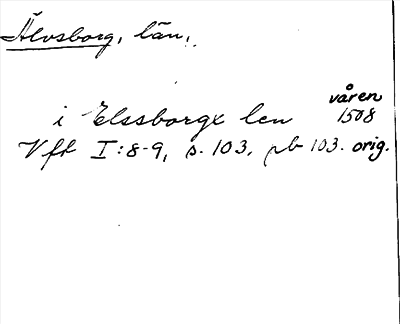 Älvsborg, län.
våren
i Elssborgx len 1508
Vft I:8-9, s. 103, pb 103. orig.